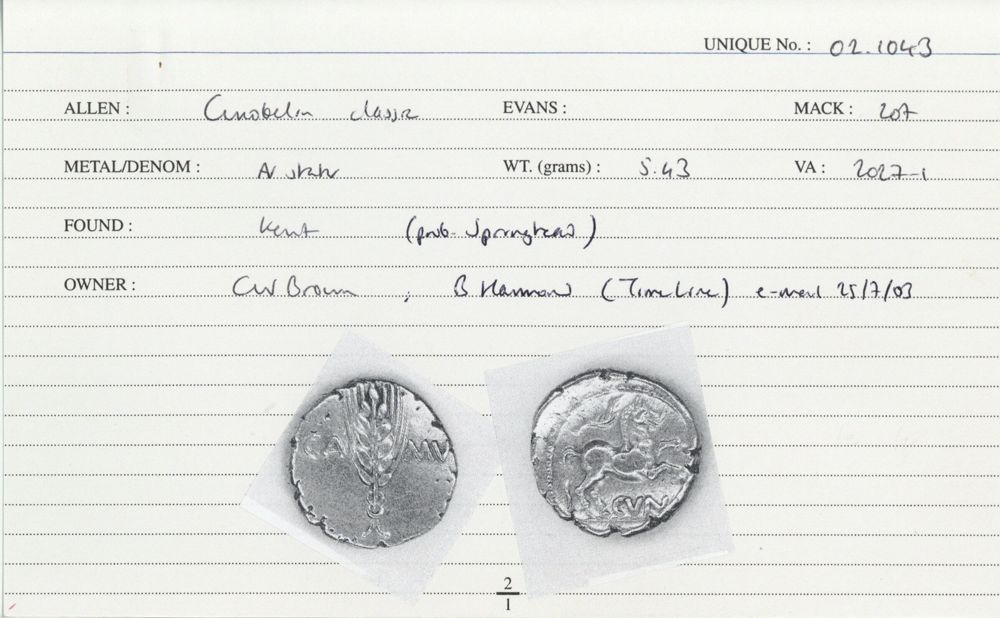 UNIQUE No. : 02.1043
ALLEN : Cunobelin classic EVANS : MACK : 207
METAL/DENOM : AV stater WT. (grams) : 5.43 VA : 2027-1
FOUND : Kent (prob. Springhead)
OWNER : CW Brown ; B Hammond (TimeLine) e-mail 25/7/03
CA MV
CVN
2
1